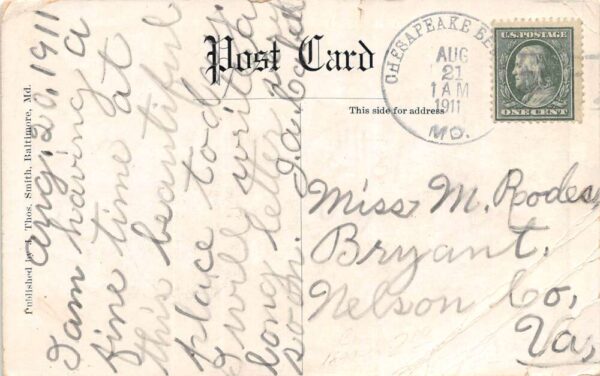 Post Card
This side for address
CHESAPEAKE BE
AUG
21
1 AM
1911
MD.
U.S. POSTAGE
ONE CENT
Published by J. Thos. Smith, Baltimore, Md.
Aug. 20, 1911
I am having a
fine time at
this beautiful
place today.
I will write a
long letter
soon.
Miss M. Rodes,
Bryant.
Nelson Co,
Va,